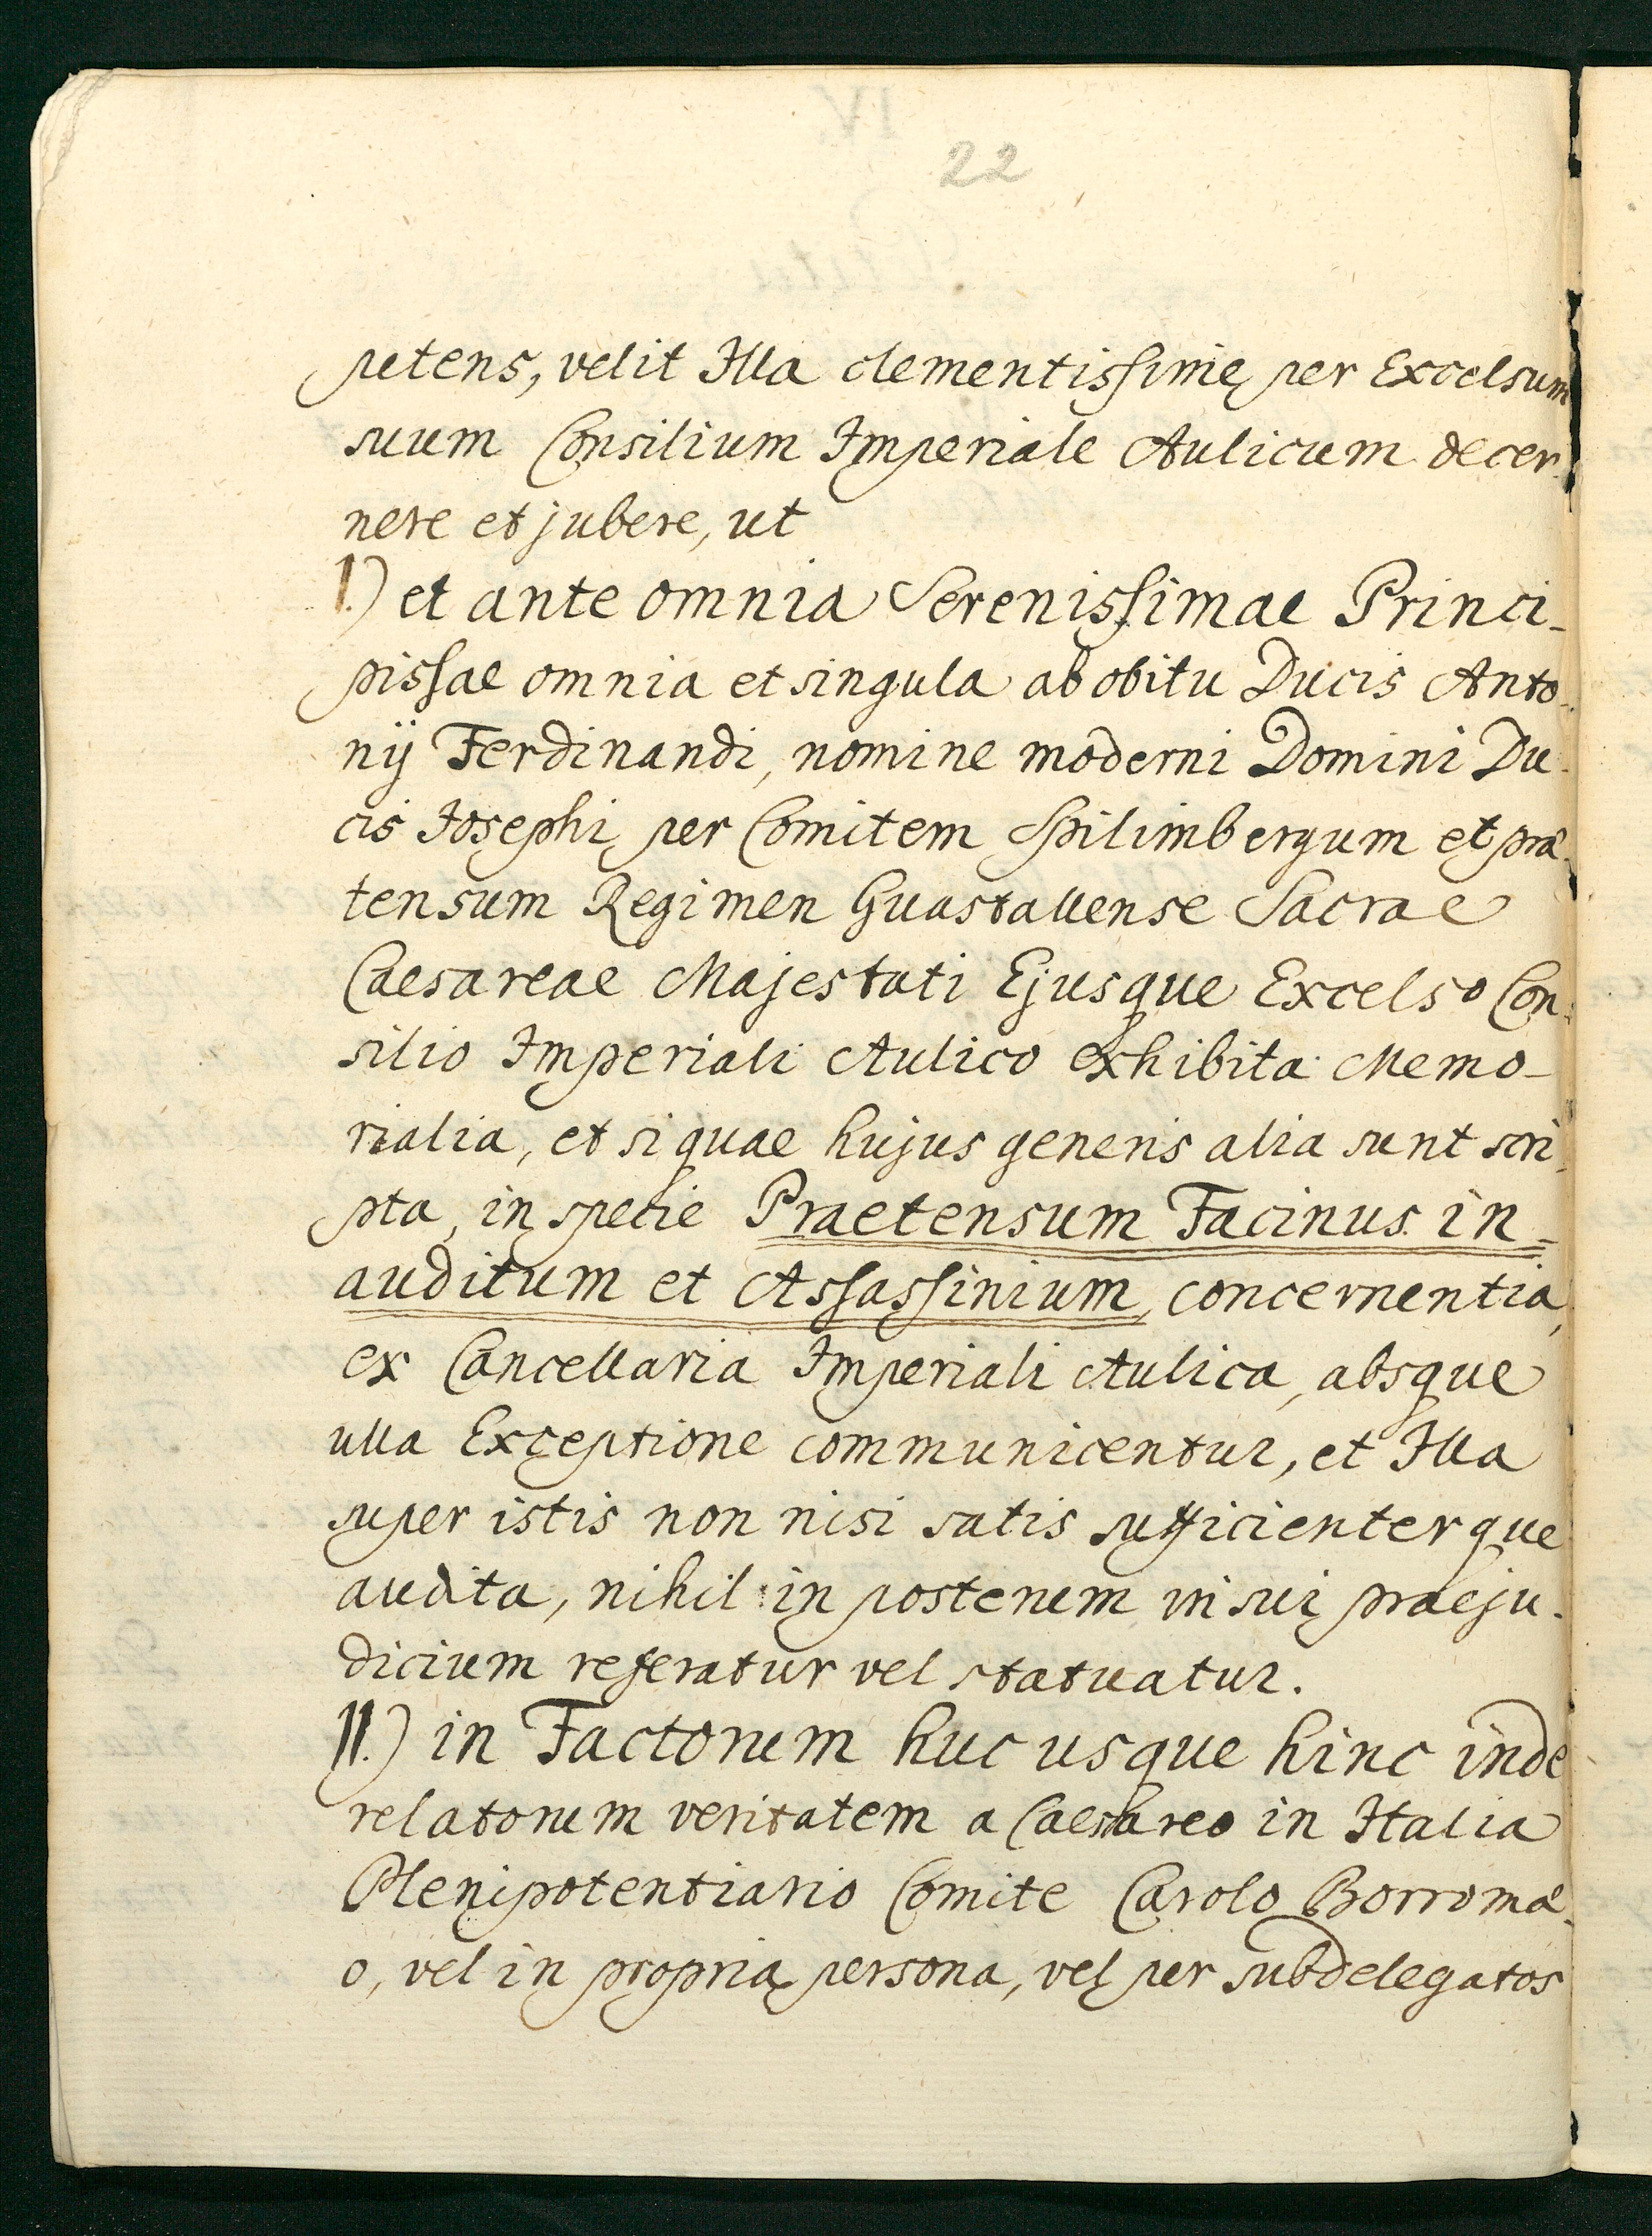 22
petens, velit Illa clementissime per Excelsum
suum Consilium Imperiale Aulicum decer
nere et jubere, ut
I.) et ante omnia Serenissimae Princi-
pissae omnia et singula ab obitu Ducis Anto-
nij Ferdinandi, nomine moderni Domini Du-
cis Josephi per Comitem Spilimbergum et præ-
tensum Regimen Guastallense Sacrae
Caesareae Majestati Ejusque Excelso Con-
silio Imperiali Aulico exhibita Memo-
rialia, et si quae hujus generis alia sunt scri-
pta, in specie Praetensum Facinus in-
auditum et Assassinium, concernentia,
ex Cancellaria Imperiali Aulica, absque
ulla Exceptione communicentur, et Illa
super istis non nisi satis sufficienterque
audita, nihil in posterum in sui praeju-
dicium referatur vel statuatur.
II.) in Factorum huc usque hinc inde
relatorum veritatem a Caesareo in Italia
Plenipotentiario Comite Carolo Borromæ-
o, vel in propria persona, vel per subdelegatos